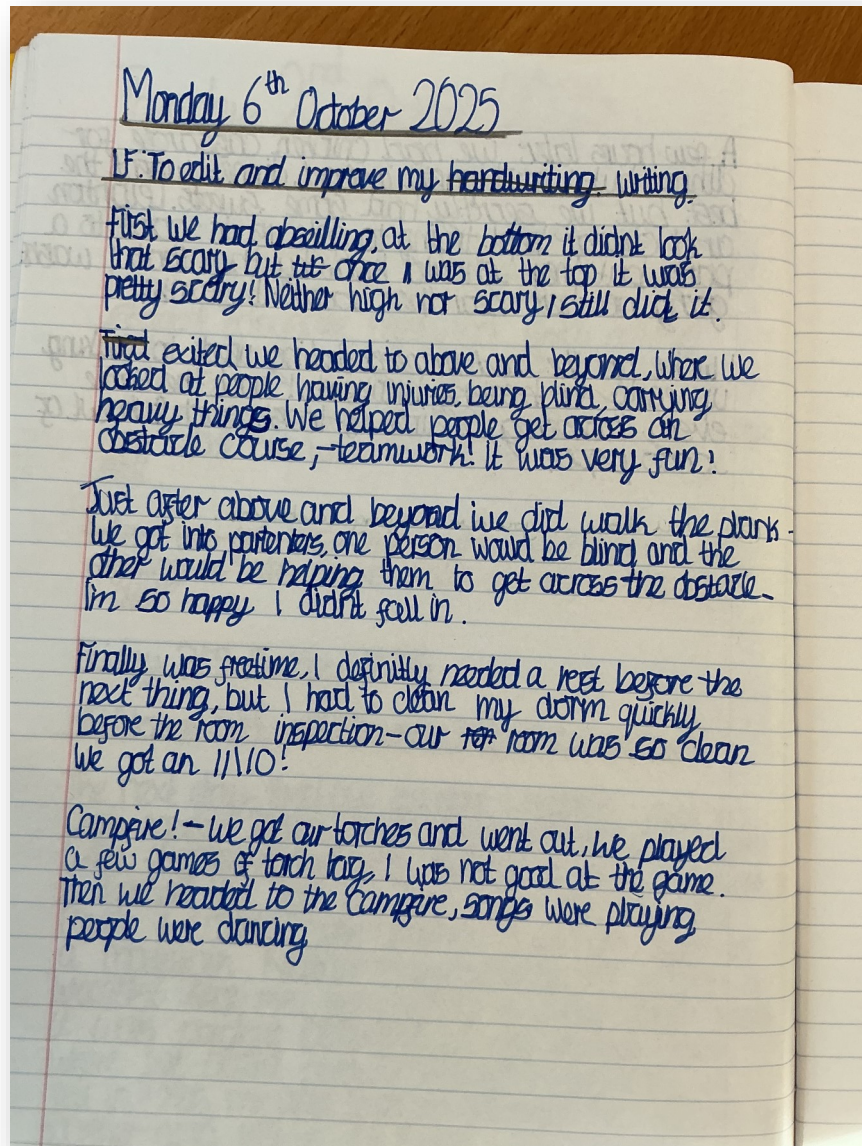 Monday 6th October 2025
LF: To edit and improve my handwriting. writing.
First we had abseilling, at the bottom it didnt look
that scary but once I was at the top it was
pretty scary! Neither high nor scary I still did it.
Tired exited we headed to above and beyond, where we
looked at people having injuries, being blind, carrying
heavy things. We helped people get across an
obstacle course, -teamwork! It was very fun!
Just after above and beyond we did walk the plank -
We got into partenters, one person would be blind and the
other would be helping them to get across the obstacle-
I'm so happy I didn't fall in.
Finally was freetime, I definitly needed a rest before the
next thing, but I had to clean my dorm quickly
before the room inspection-our room was so clean
We got an 11\10!
Campfire!-we got our torches and went out, We played
a few games of torch tag, I was not good at the game.
Then we headed to the Campfire, songs were playing
people were dancing